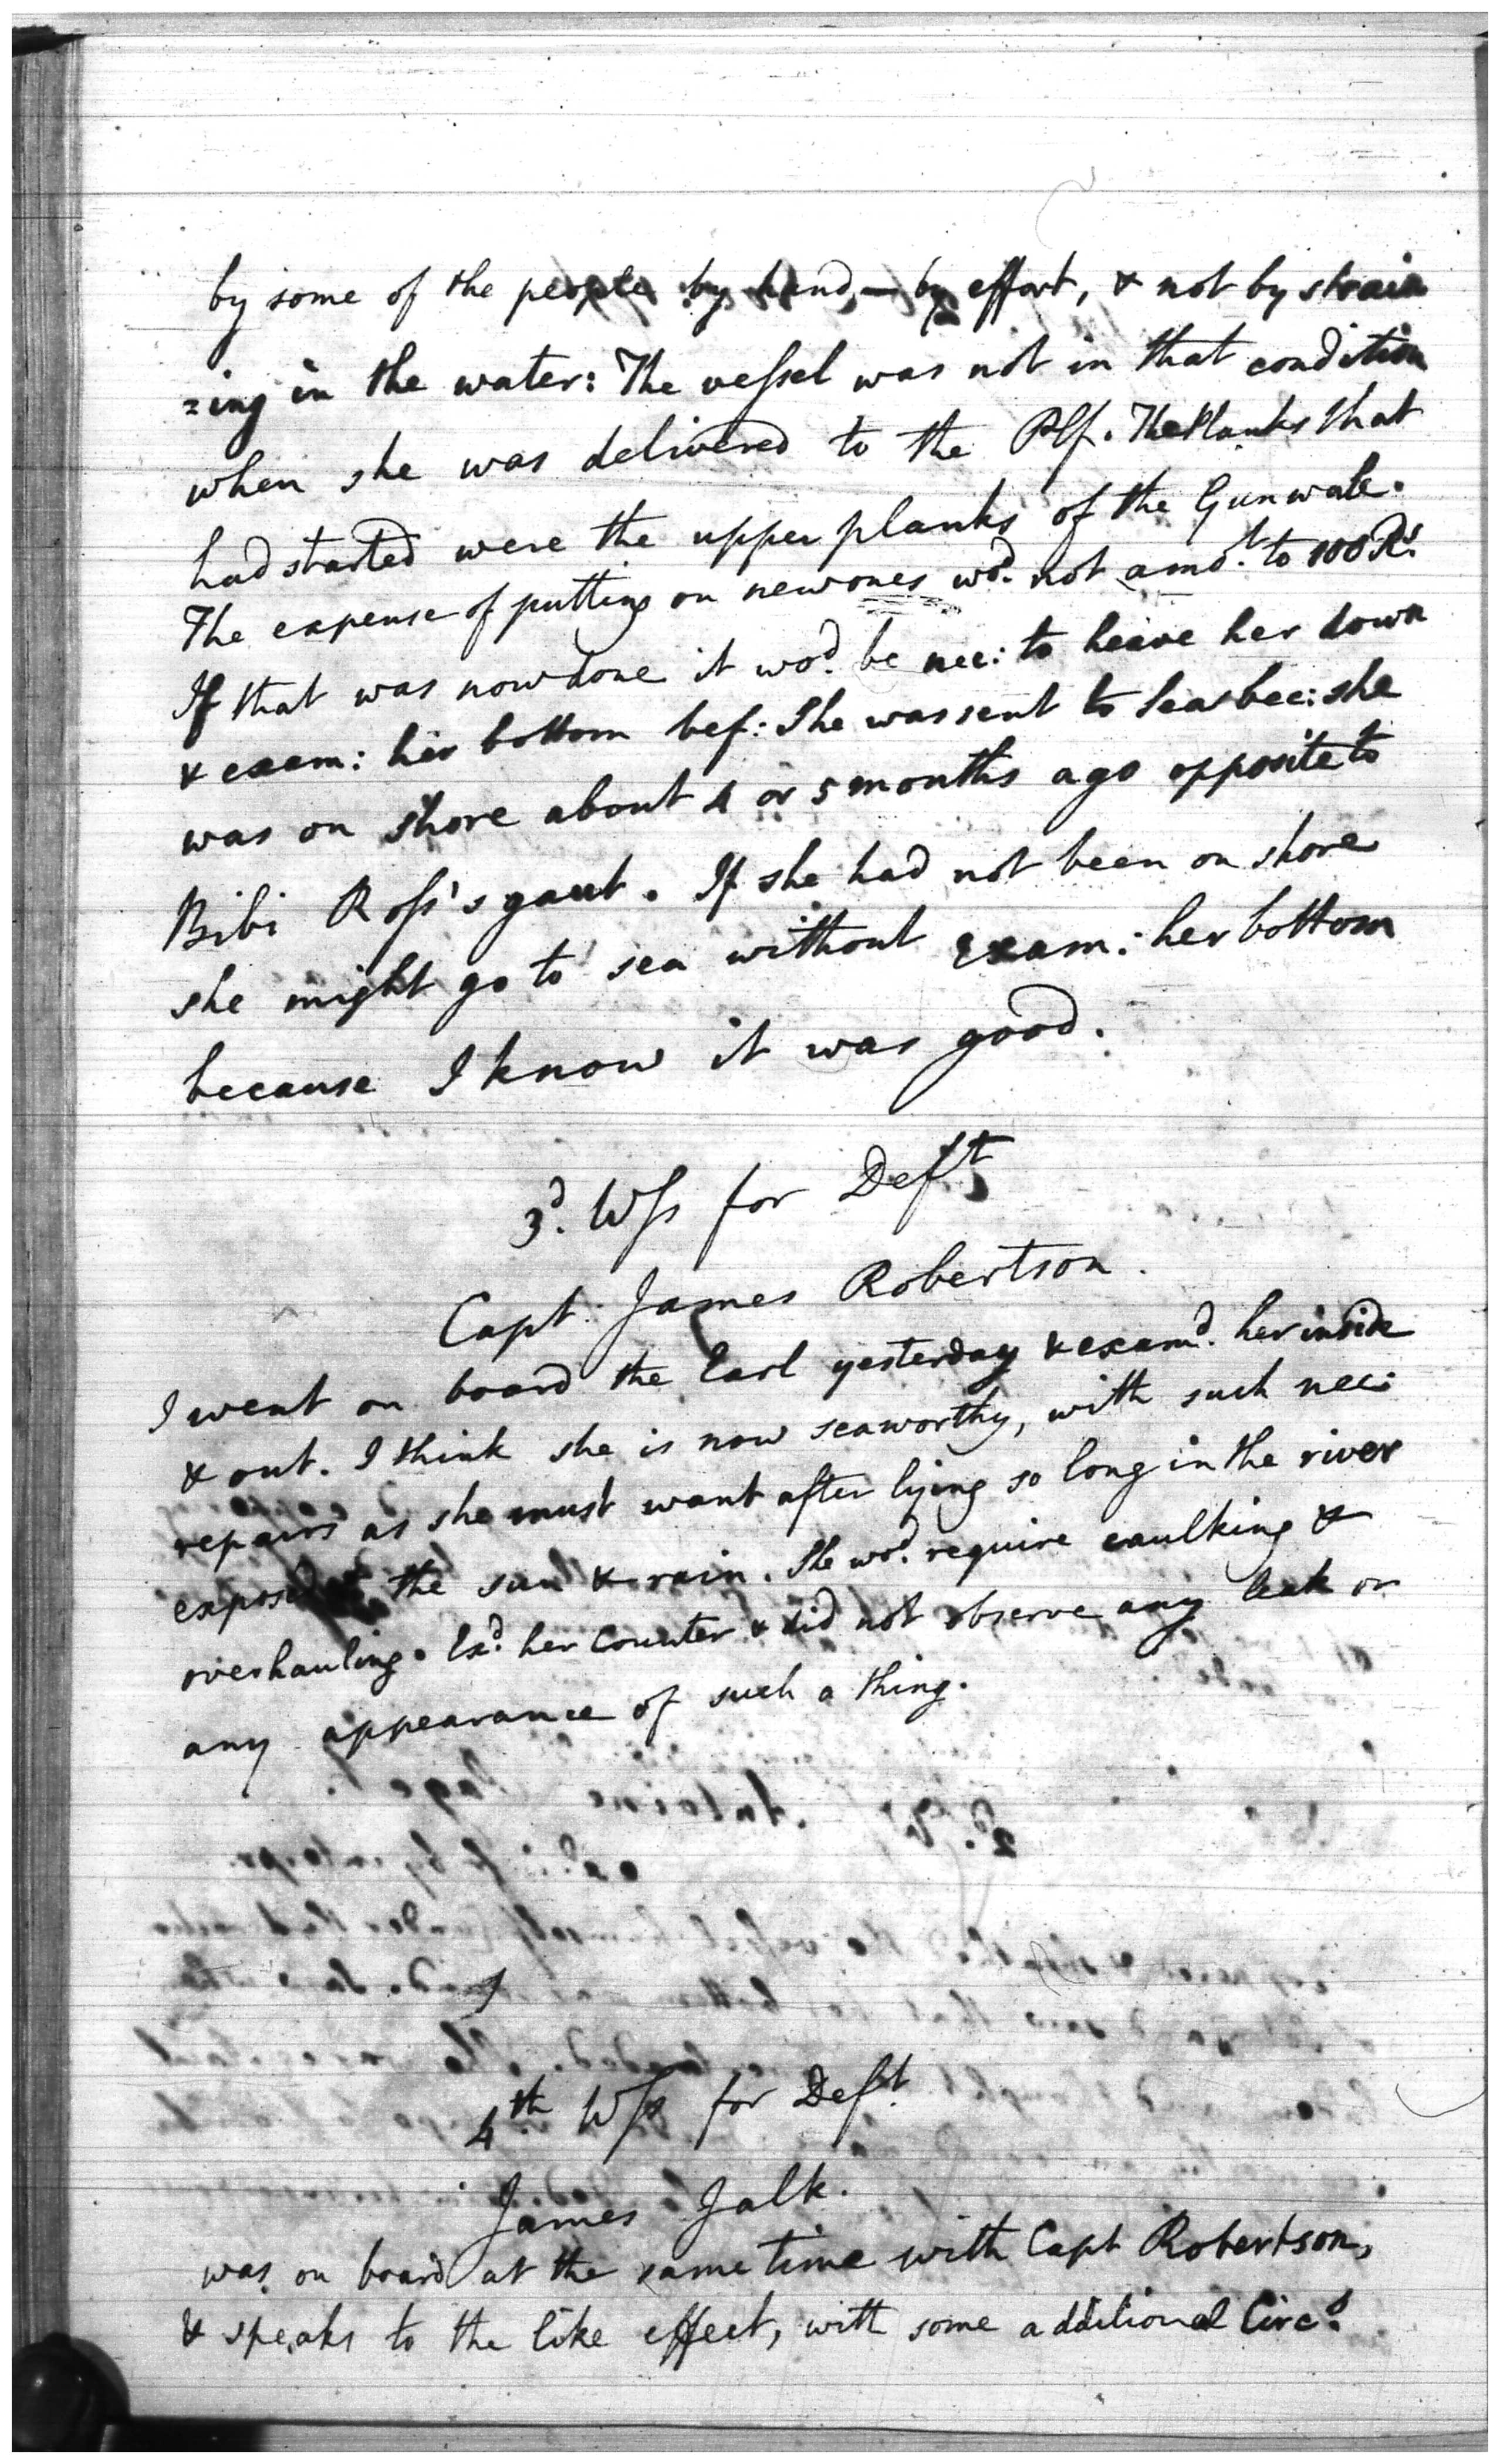 by some of the people by hand, — by effort, & not by strain
=ing in the water: The veſsel was not in that condition
when she was delivered to the Plf. The Planks that
had started were the upper planks of the Gunwale.
The expense of putting on new ones wod. not amot. to 100 Rs.
If that was now done it wod. be nec: to heave her down
& exam: her bottom bef: She was sent to Sea bec: she
was on Shore about 4 or 5 months ago opposite to
Bibi Roſs's gaut. If she had not been on shore
she might go to sea without exam: her bottom
because I know it was good.
3d. Wſs for Deft
Capt. James Robertson.
I went on board the Earl yesterday & examd. her inside
& out. I think she is now seaworthy, with such nec:
repairs as she must want after lying so long in the river
exposed the sun & rain. She wod. require caulking &
overhauling. Exd. her Counter & did not observe any leak or
any appearance of such a thing.
4th. Wſs for Deft.
James Jalk.
was on board at the same time with Capt Robertson,
& speaks to the like effect, with some additional Circs.